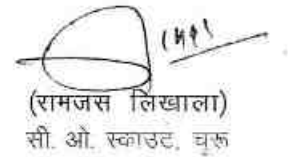 (रामजस लिखाला)
सी. ओ. स्काउट, चुरू